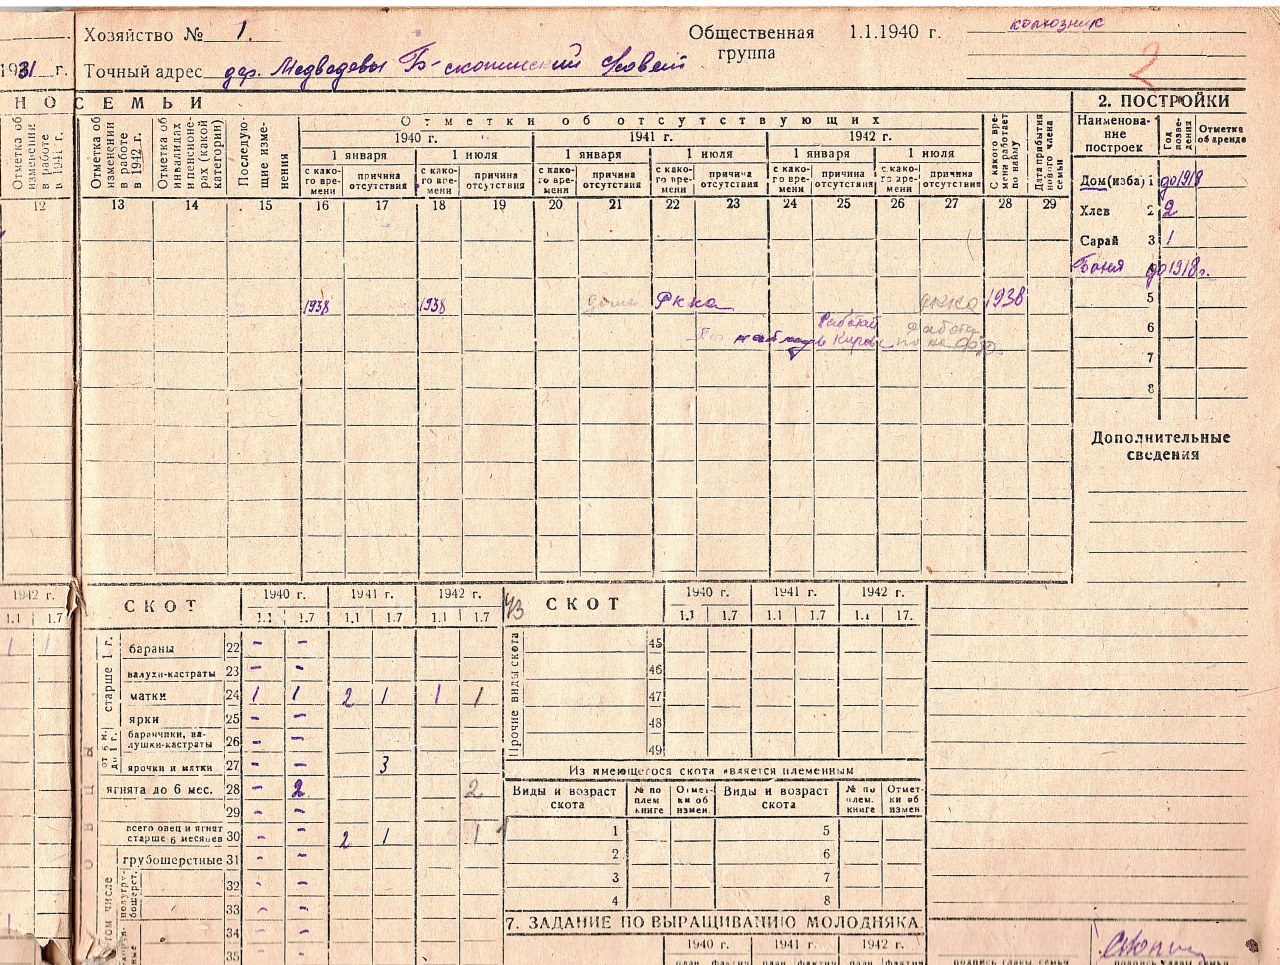 Хозяйство № 1.
Общественная группа 1.1.1940 г. колхозник
1931 г.
2
Точный адрес дер. Медведевы Б-скопинский Совет
НО СЕМЬИ
Отметка об изменении в работе в 1941 г.
Отметка об изменении в работе в 1942 г.
Отметка об инвалидах и пенсионерах (какой категории)
Последующие изменения
Отметки об отсутствующих
1940 г. 1941 г. 1942 г.
1 января 1 июля 1 января 1 июля 1 января 1 июля
с какого времени причина отсутствия с какого времени причина отсутствия с какого времени причина отсутствия с какого времени причина отсутствия с какого времени причина отсутствия с какого времени причина отсутствия
С какого времени работает по найму
Дата прибытия нового члена семьи
12 13 14 15 16 17 18 19 20 21 22 23 24 25 26 27 28 29
1938 1938 Ркка ркка 1938
Работай Работа
2. ПОСТРОЙКИ
Наименование построек Год возведения Отметка об аренде
Дом (изба) 1 до 1918
Хлев 2 2
Сарай 3 1
Баня до 1918 г.
5
6
7
8
Дополнительные сведения
1942 г.
1.1 1.7
1 1
СКОТ 1940 г. 1941 г. 1942 г.
1.1 1.7 1.1 1.7 1.1 1.7
старше 1 г.
бараны 22 - -
валухи-кастраты 23 - -
матки 24 1 1 2 1 1 1
ярки 25 - -
от 6 м. до 1 г.
баранчики, валушки-кастраты 26 - -
ярочки и матки 27 - - 3
ягнята до 6 мес. 28 - 2 2
29 - -
всего овец и ягнят старше 6 месяцев 30 - - 2 1 1
грубошерстные 31 - -
32 - -
33 - -
34 - -
35 - -
том числе
полугрубошерст.
СКОТ 1940 г. 1941 г. 1942 г.
1.1 1.7 1.1 1.7 1.1 17.
Прочие виды скота
45
46
47
48
49
Из имеющегося скота является племенным
Виды и возраст скота № по плем. книге Отметки об измен. Виды и возраст скота № по плем. книге Отметки об измен.
1 5
2 6
3 7
4 8
7. ЗАДАНИЕ ПО ВЫРАЩИВАНИЮ МОЛОДНЯКА
1940 г. 1941 г. 1942 г.
план фактич план фактич план фактич
подпись главы семьи подпись главы семьи